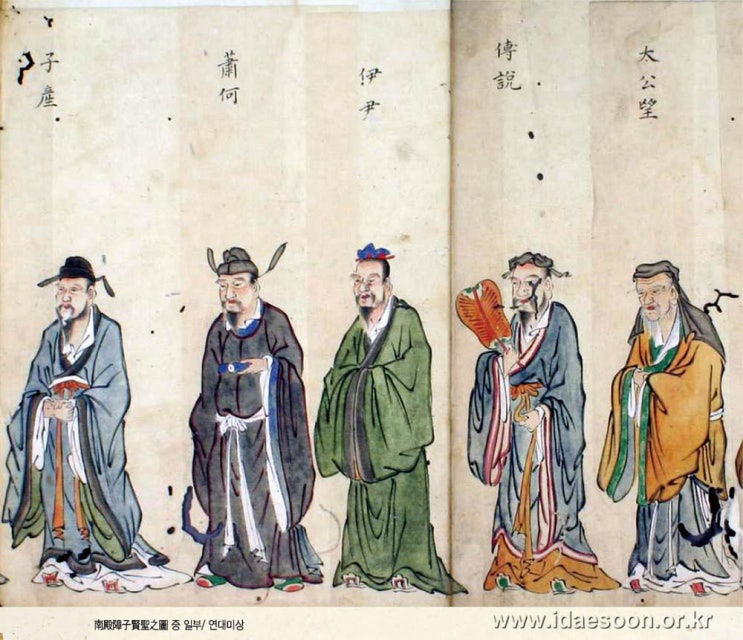 子産
蕭何
伊尹
傅說
太公望
南殿障子賢聖之圖 중 일부/ 연대미상
www.idaesoon.or.kr